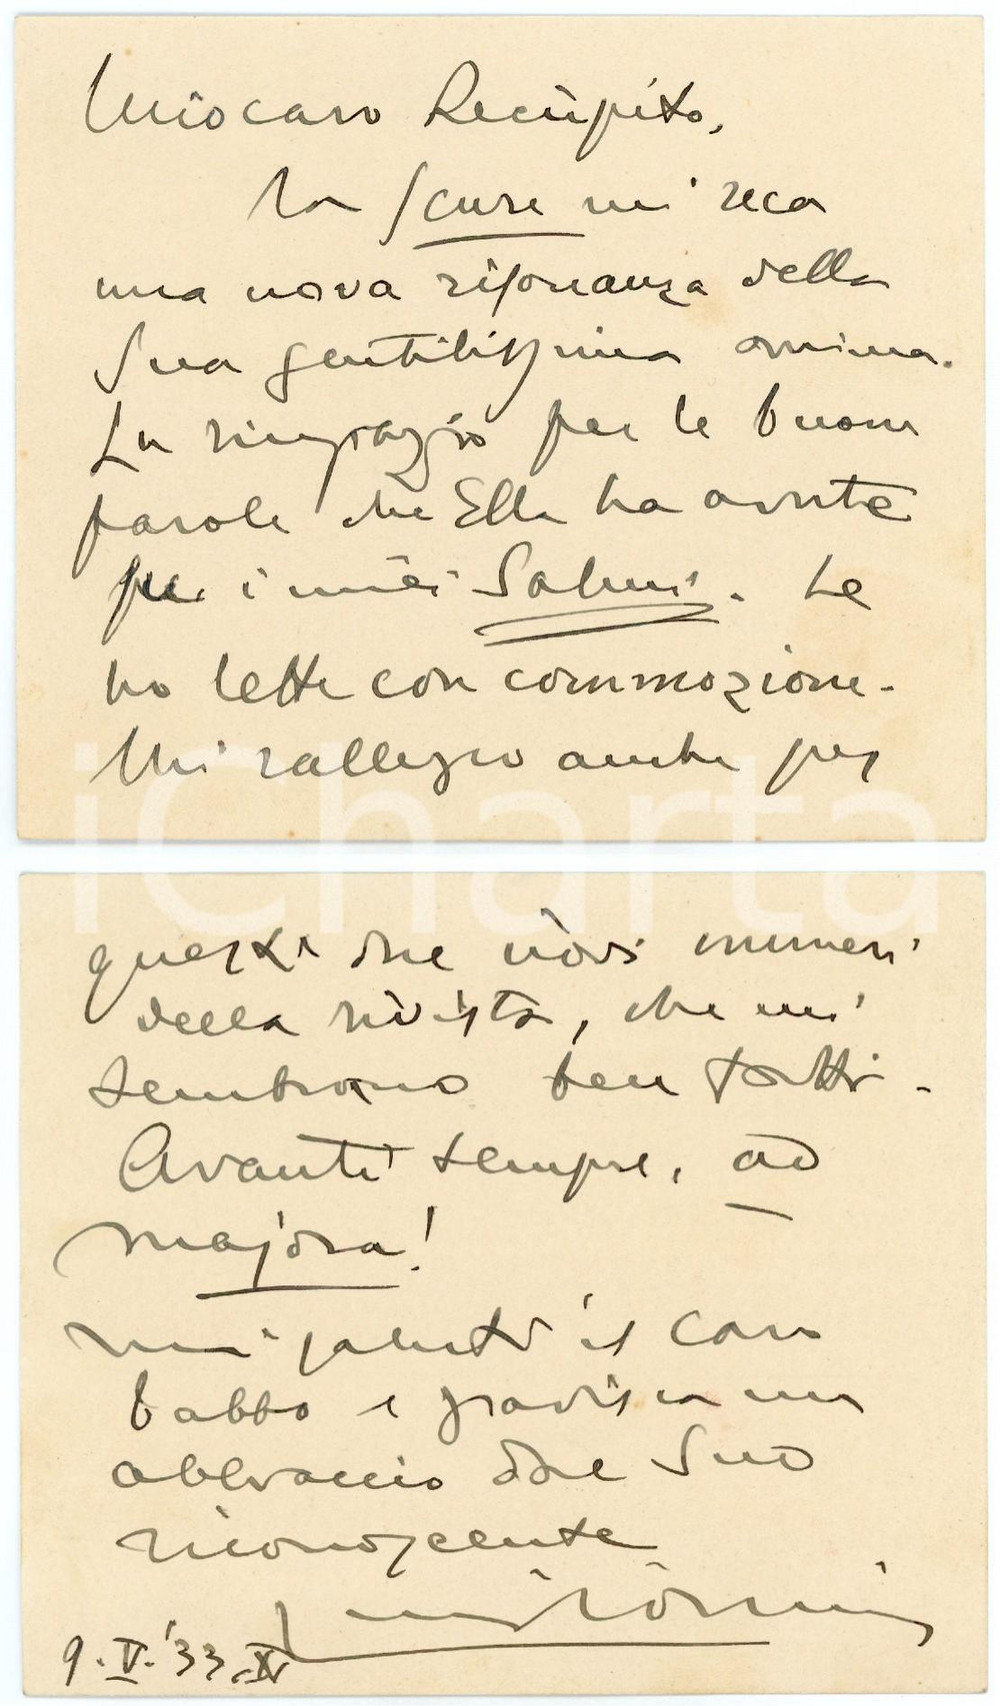 Mio caro Recùpito,
La Scure mi reca
una nova risonanza della
Sua gentilissima anima.
La ringrazio per le buone
parole che Ella ha avute
per i miei Salmi. Le
ho lette con commozione.
Mi rallegro anche per
iCharta
questi due novi numeri
della rivista, che mi
sembrano ben fatti.
Avanti sempre, ad
majora!
Mi saluti il caro
babbo e gradisca un
abbraccio dal Suo
riconoscente
9.V.'33.XI